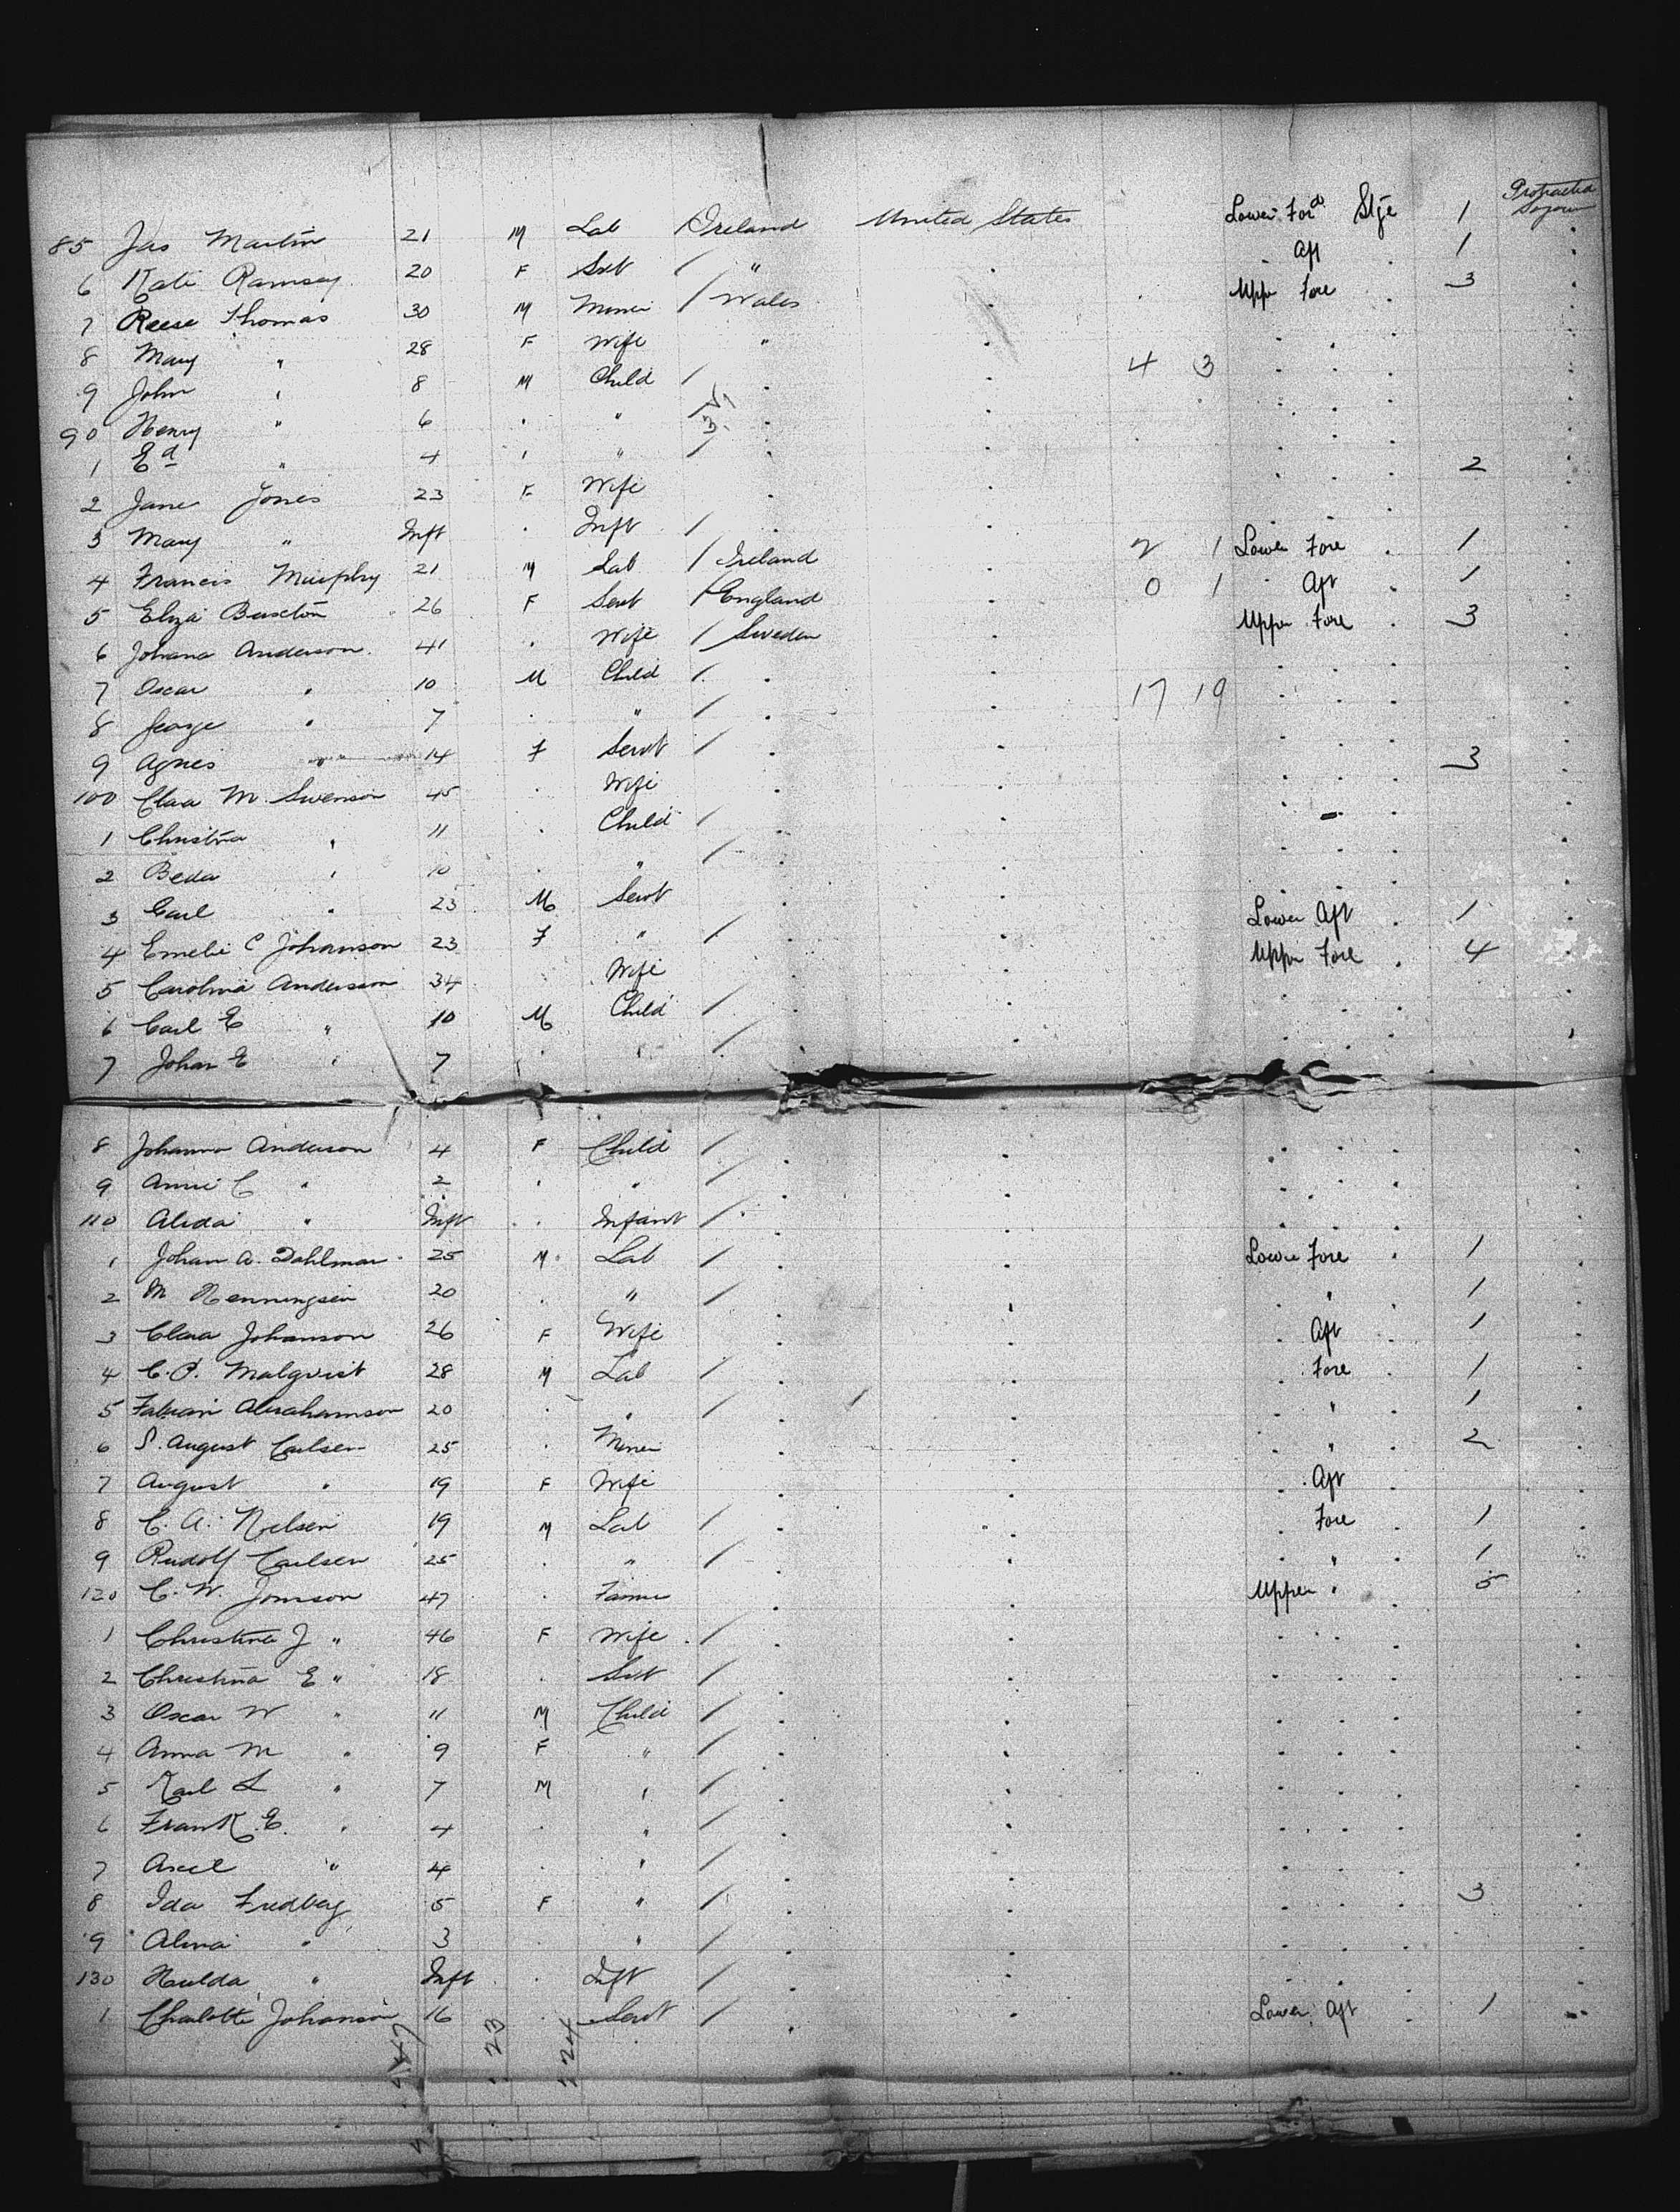 85 Jas Martin 21 M Lab / Ireland United States Lower Ford Stge 1 Protracted Sojourn
6 Kate Ramsey 20 F Svt / " . . Aft . 1 .
7 Reese Thomas 30 M Miner / Wales . Upper Fore . 3 .
8 Mary " 28 F Wife " . . . .
9 John " 8 M Child / . . 4 3 . . . .
90 Henry " 6 . " / . . . . . .
1 Ed " 4 . " / . . . . . .
2 Jane Jones 23 F Wife . . . . . 2 .
3 Mary " Inft . Inft / . . . . . .
4 Francis Murphy 21 M Lab / Ireland . 2 1 Lower Fore . 1 .
5 Eliza Buxton 26 F Servt / England . 0 1 . Aft . 1 .
6 Johana Anderson 41 . Wife / Sweden . Upper Fore . 3 .
7 Oscar " 10 M Child / . . . . . .
8 George " 7 . " / . . 17 19 . . . .
9 Agnes " 14 F Servt / . . . . . .
100 Clara M. Swenson 45 . Wife . . . . . 3 .
1 Christina " 11 . Child / . . . . . .
2 Beda " 10 . " / . . . . . .
3 Carl " 23 M Servt . . . . . .
4 Emelie C Johanson 23 F " / . . Lower Aft . 1 .
5 Carolina Anderson 34 Wife . . Upper Fore . 4 .
6 Carl E " 10 M Child / . . . . . .
7 Johan E " 7 . " / . . . . . .
8 Johanna Anderson 4 F Child / . . . . . .
9 Annie C " 2 . " / . . . . . .
110 Alida " Inft . Infant / . . . . . .
1 Johan A. Dahlman 25 M Lab / . . Lower Fore . 1 .
2 M Henningsen 20 . " / . . . " . 1 .
3 Clara Johanson 26 F Wife . . . Aft . 1 .
4 C. P. Malqvist 28 M Lab / . . . Fore . 1 .
5 Fabian Abrahamson 20 . " / . . . " . 1 .
6 S. August Carlsen 25 . Miner . . . " . 2 .
7 August " 19 F Wife . . . Aft .
8 C. A. Nielsen 19 M Lab / . . . Fore . 1 .
9 Rudolf Carlsen 25 . " / . . . " . 1 .
120 C. W. Jonsson 47 . Farmer . . Upper " . 5 .
1 Christina J " 46 F Wife / . . . . . .
2 Christina E " 18 . Svt / . . . . . .
3 Oscar W " 11 M Child / . . . . . .
4 Anna M " 9 F " / . . . . . .
5 Karl L " 7 M " / . . . . . .
6 Frank E. " 4 . " / . . . . . .
7 Axel " 4 . " / . . . . . .
8 Ida Fredberg 5 F " / . . . . . 3 .
9 Alma " 3 . " / . . . . . .
130 Hulda " Inft . Inft / . . . . . .
1 Charlotte Johanson 16 . Servt / . . Lower Aft . 1
23 24